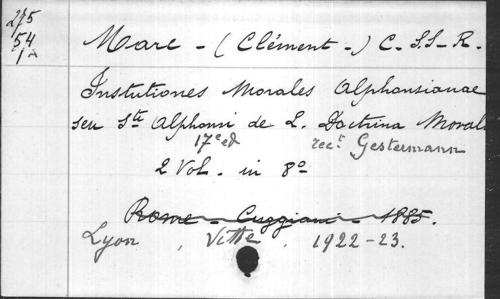 275
54
1A
Marc - (Clément -) C. SS. R.
Instutiones Morales Alphonsianae
seu Sti Alphonsi de L. Doctrina Morali
17e ed rect Gestermann
2 Vol. in 8o
Rome - Cuggiani - 1885.
Lyon, Vitte, 1922-23.